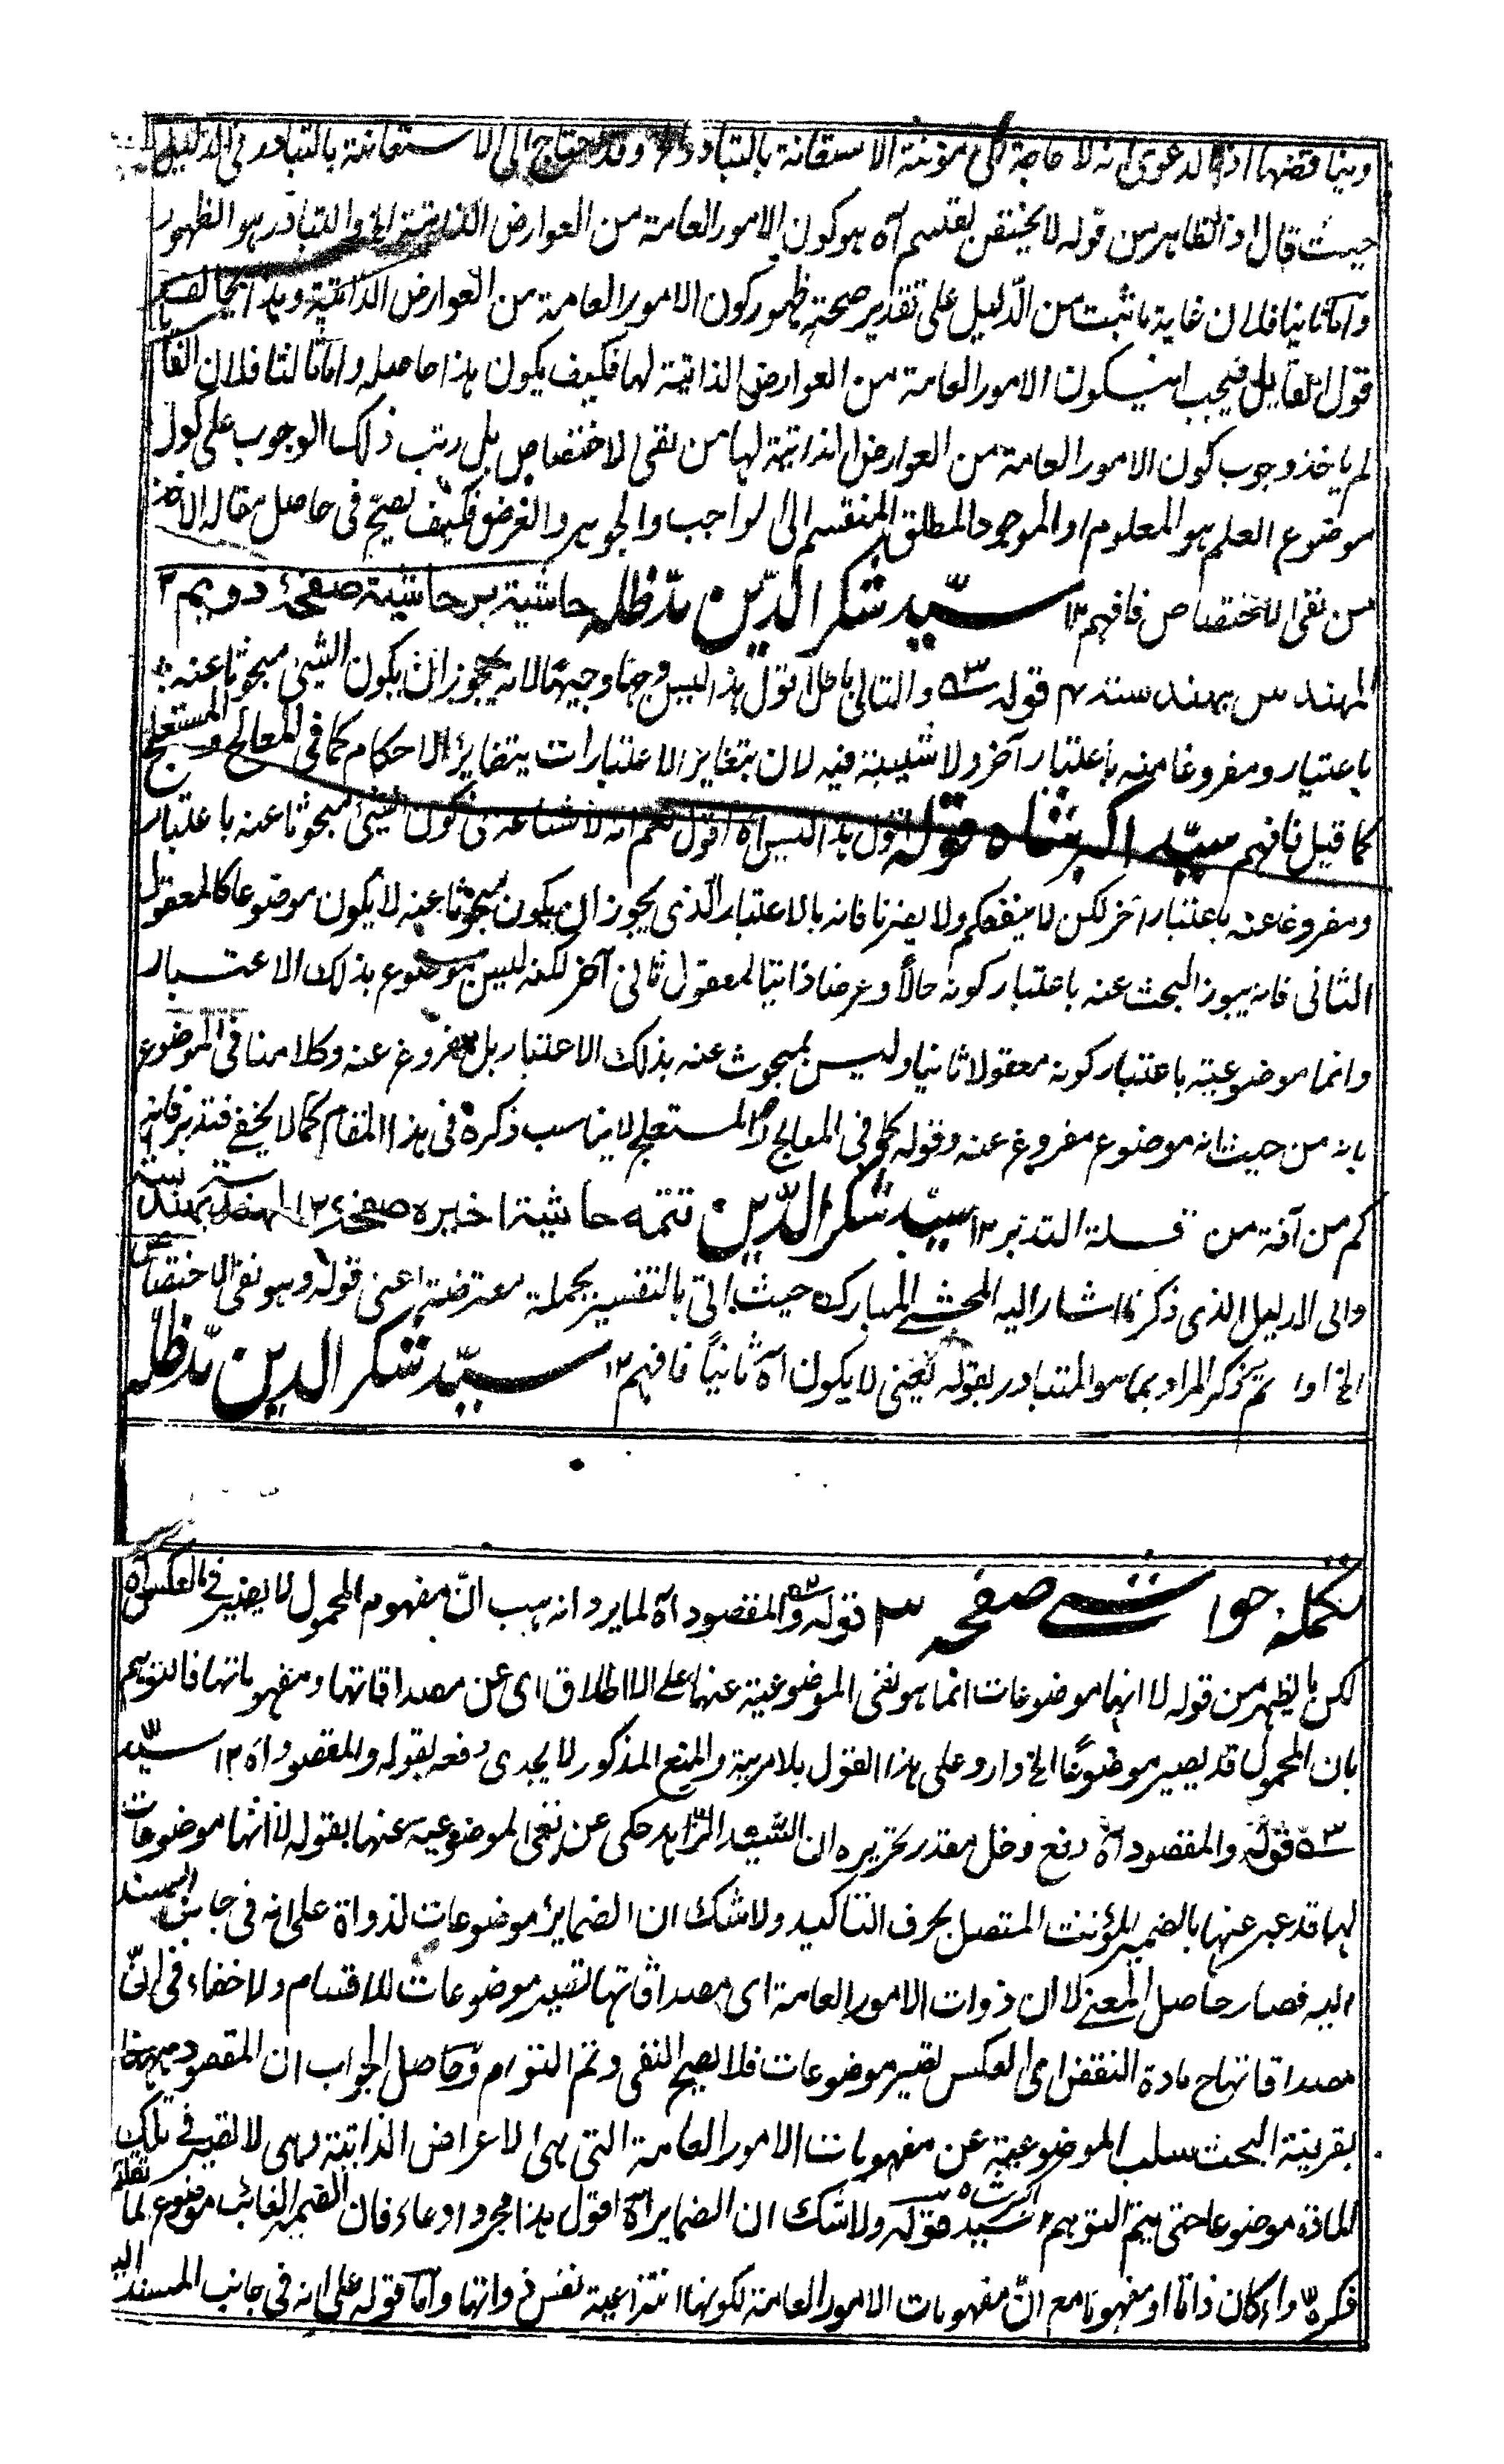 ويناقضها اذ الدعوى انه لا حاجة الى مؤنثة الاستعانة بالتبادر وقد احتاج الى الاستعانة بالتبادر فى الدليل
حيث قال اذ الظاهر من قوله لا يختص بقسم آه هو كون الامور العامة من العوارض الذاتية الخ والتبادر هو الظهور
واما ثانيا فلان غاية ما ثبت من الدليل على تقدير صحته ظهور كون الامور العامة من العوارض الذاتية وهذا يخالف
قول القايل فيجب ان يكون الامور العامة من العوارض الذاتية لها فكيف يكون هذا حاصله واما ثالثا فلان القا
لم ياخذ وجوب كون الامور العامة من العوارض الذاتية لها من نفى الاختصاص بل رتب ذلك الوجوب على كون
موضوع العلم هو المعلوم او الموجود المطلق المنقسم الى الواجب والجوهر والعرض فكيف يصح فى حاصل مقاله الاخذ
من نفى الاختصاص فافهم ١٢ سيد شكر الدين مد ظله حاشية بر حاشية صفحۂ دويم ٢
المهندس بهند سنده ٣ قوله ٥٣ والتالى باطل اقول هذا ليس وجها وجيها لانه يجوز ان يكون الشئ مبحوثا عنه
باعتبار ومفروغا منه باعتبار آخر ولا شبهة فيه لان بتغاير الاعتبارات يتغاير الاحكام كما فى المعالج والمستعلج
كما قيل فافهم سيد اكبر شاه قوله اقول هذا ليس آه اقول نعم انه لا شناعة فى كون الشئ مبحوثا عنه باعتبار
ومفروغا عنه باعتبار آخر لكن لا ينفعكم ولا يضرنا فانه بالاعتبار الذى يجوز ان يكون مبحوثا عنه لا يكون موضوعا كالمعقول
الثانى فانه يجوز البحث عنه باعتبار كونه حالا وعرضا ذاتيا لمعقول ثانى آخر لكنه ليس موضوع بذلك الاعتبار
وانما موضوعيته باعتبار كونه معقولا ثانيا وليس بمبحوث عنه بذلك الاعتبار بل مفروغ عنه وكلامنا فى الموضوع
بانه من حيث انه موضوع مفروغ عنه وقوله كما فى المعالج والمستعلج لا يناسب ذكره فى هذا المقام كما لا يخفى فتدبر فانه
كم من آفة من قلة التدبر ١٢ سيد شكر الدين تتمه حاشية اخيره صفحه ٢
والى الدليل الذى ذكرنا اشار اليه المحشى المبارك حيث اتى بالتفسير بجملة معترضة اعنى قوله وهو نفى الاختصاص
الخ اولا ثم ذكر المراد بما هو المتبادر بقوله يعنى لا يكون آه ثانيا فافهم ١٢ سيد شكر الدين مد ظله
تكمله حواشى صفحه ٣ قوله والمقصود آه لما يرد انه هب ان مفهوم المحمول لا يصير فى العكس آه
لكن ما يظهر من قوله لا انها موضوعات انما هو نفى الموضوعية عنها على الاطلاق اى عن مصداقاتها ومفهوماتها فالتوهم
بان المحمول قد يصير موضوعا الخ وارد على هذا القول بلا مرية والمنع المذكور لا يجدى دفعه بقوله والمقصود آه ١٢ سيد
٥٣ قوله والمقصود آه دفع دخل مقدر تقريره ان السيد الزاهد حكى عن نفى الموضوعية عنها بقوله لا انها موضوعات
لها قد عبر عنها بالضمير المؤنث المتصل بحرف التاكيد ولا شك ان الضماير موضوعات لذواة على انه فى جانب المسند
اليه فصار حاصل المعنى لا ان ذوات الامور العامة اى مصداقاتها تصير موضوعات للاقسام ولا خفاء فى ان
مصداقاتها ح مادة النقض اى العكس تصير موضوعات فلا يصح النفى وتم التوهم وحاصل الجواب ان المقصود ههنا
بقرينة البحث سلب الموضوعية عن مفهومات الامور العامة التى هى الاعراض الذاتية وهى لا تصير فى تلك
المادة موضوعا حتى يتم التوهم سيد اكبر شاه قوله ولا شك ان الضماير آه اقول هذا مجرد ادعاء فان الضمير الغائب موضوع لما تقدم
ذكره سواء كان ذاتا او مفهوما مع ان مفهومات الامور العامة لكونها انتزاعية نفس ذواتها واما قوله على انه فى جانب المسند اليه